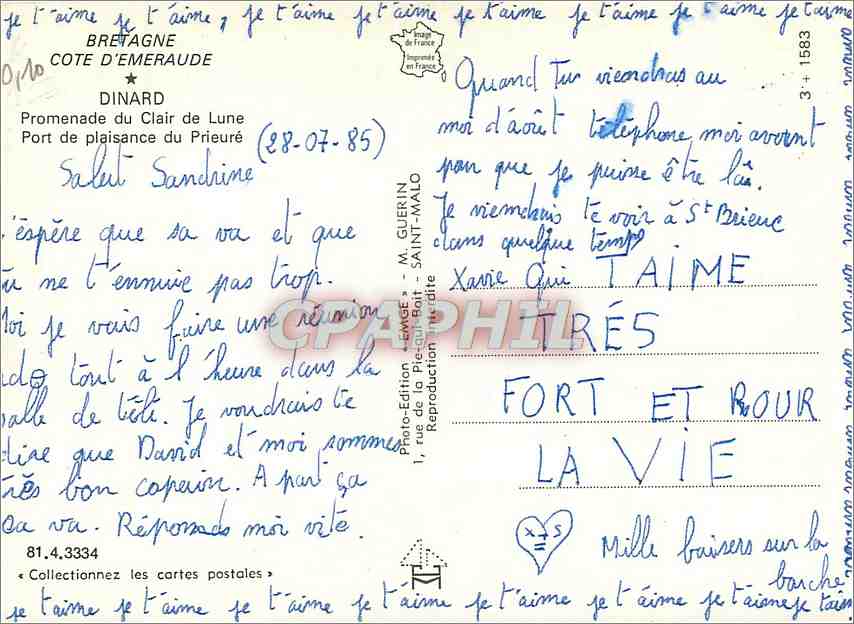 je t'aime je t'aime, je t'aime je t'aime je t'aime je t'aime je t'aime je t'aime
BRETAGNE
COTE D'EMERAUDE
DINARD
Promenade du Clair de Lune
Port de plaisance du Prieuré
0,10
(28-07-85)
Salut Sandrine
'espère que sa va et que
u ne t'ennuie pas trop.
oi je vais faire une réunion
ado tout à l'heure dans la
alle de télé. Je voudrais te
dire que David et moi sommes
très bon copain. A part ça
sa va. Réponds moi vite.
81.4.3334
« Collectionnez les cartes postales »
Image
de France
Imprimée
en France
3 + 1583
Photo-Edition « EMGE » - M. GUERIN
1, rue de la Pie-qui-Boit - SAINT-MALO
Reproduction interdite
Quand Tu viendras au
moi d'août téléphone moi avant
pour que je puisse être là.
Je viendrais te voir à St Brieuc
dans quelque temps
Xavie Qui T'AIME
TRÉS
FORT ET POUR
LA VIE
X+S
=
Mille baisers sur la
bouche
je t'aime je t'aime je t'aime je t'aime je t'aime je t'aime je t'aime je t'aim
CPAPHIL